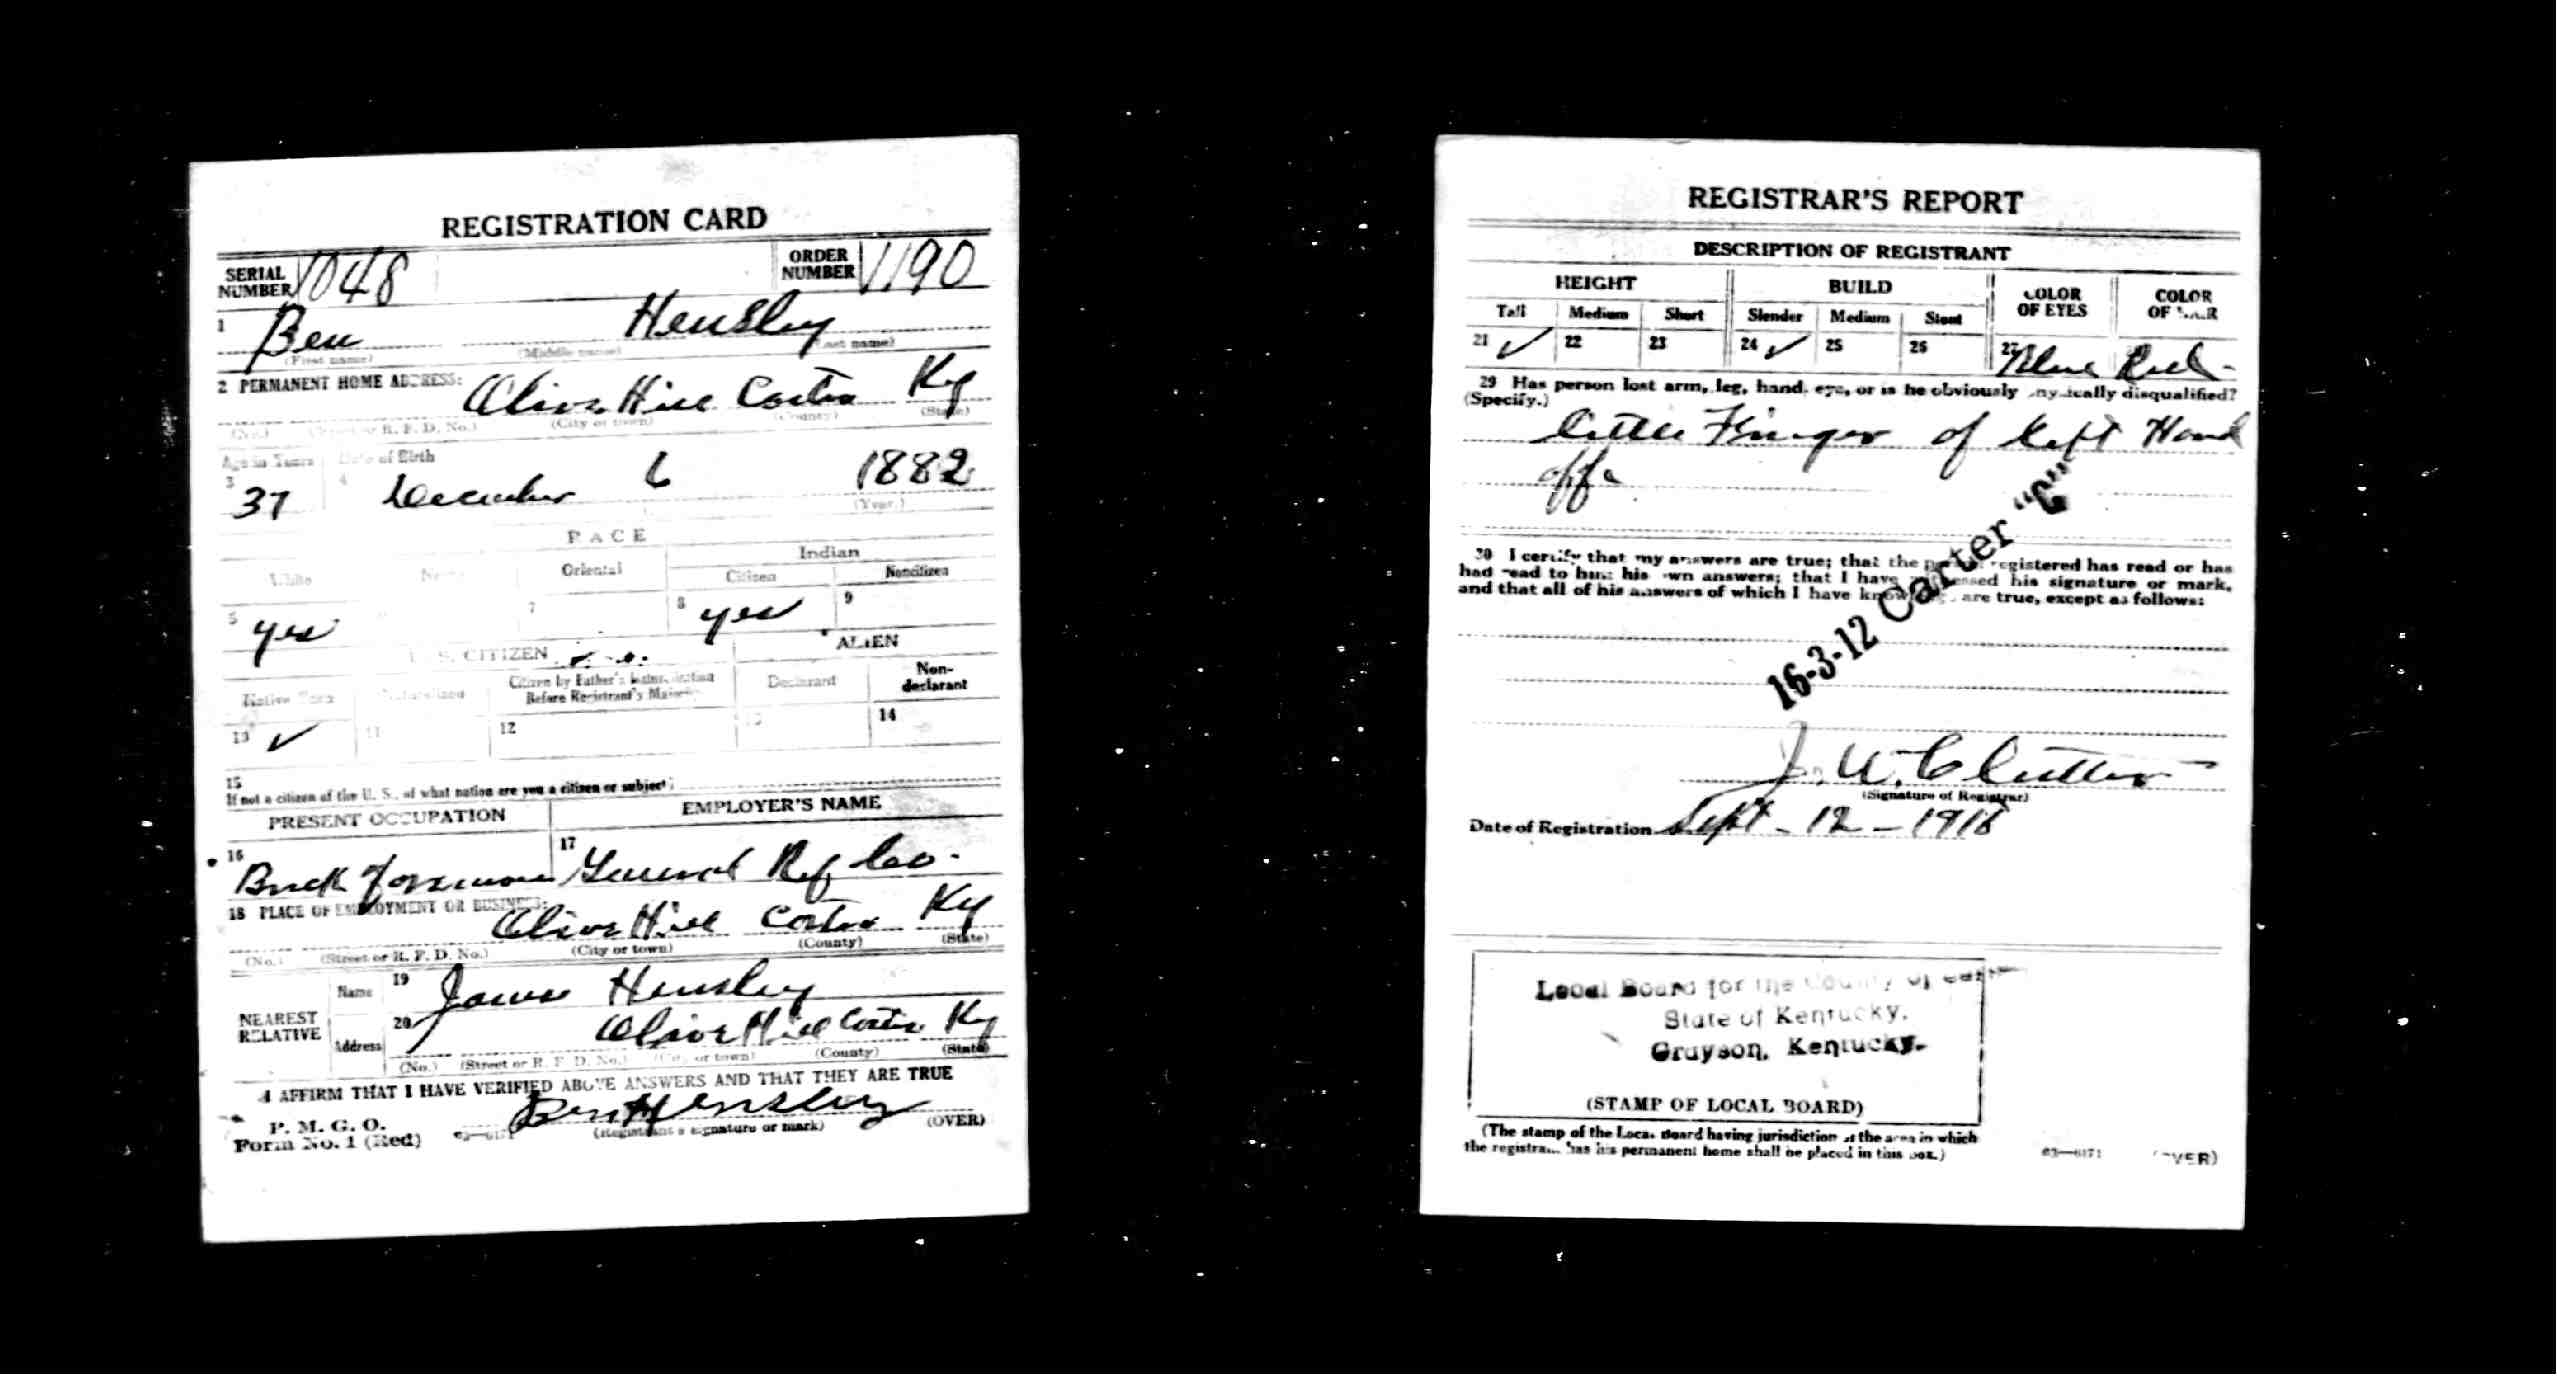 REGISTRATION CARD
SERIAL NUMBER 1048 ORDER NUMBER 1190
1 Ben Hensley
(First name) (Middle name) (Last name)
2 PERMANENT HOME ADDRESS:
Olive Hill Carter Ky
(No.) (Street or R. F. D. No.) (City or town) (County) (State)
Age in Years Date of Birth
3 37 4 December 6 1882
(Year.)
RACE
White Negro Oriental Indian
Citizen Noncitizen
5 yes 7 8 yes 9
U. S. CITIZEN ALIEN
Native Born Naturalized Citizen by Father's Naturalization Before Registrant's Majority Declarant Non-declarant
10 ✓ 11 12 13 14
15
If not a citizen of the U. S., of what nation are you a citizen or subject?
PRESENT OCCUPATION EMPLOYER'S NAME
16 Brick 17 General Ref Co.
18 PLACE OF EMPLOYMENT OR BUSINESS:
Olive Hill Carter Ky
(No.) (Street or R. F. D. No.) (City or town) (County) (State)
NEAREST RELATIVE
Name 19 James Hensley
Address 20 Olive Hill Carter Ky
(No.) (Street or R. F. D. No.) (City or town) (County) (State)
I AFFIRM THAT I HAVE VERIFIED ABOVE ANSWERS AND THAT THEY ARE TRUE
P. M. G. O.
Form No. 1 (Red) 03—6171 Ben Hensley
(Registrant's signature or mark) (OVER)
REGISTRAR'S REPORT
DESCRIPTION OF REGISTRANT
HEIGHT BUILD COLOR OF EYES COLOR OF HAIR
Tall Medium Short Slender Medium Stout
21 ✓ 22 23 24 ✓ 25 26 27 Blue Red
29 Has person lost arm, leg, hand, eye, or is he obviously physically disqualified?
(Specify.)
Little Finger of Left Hand
off
30 I certify that my answers are true; that the person registered has read or has
had read to him his own answers; that I have witnessed his signature or mark,
and that all of his answers of which I have knowledge are true, except as follows:
16-3-12 Carter "C"
J. W. Clutter
(Signature of Registrar)
Date of Registration Sept - 12 - 1918
Local Board for the County of
State of Kentucky.
Grayson, Kentucky.
(STAMP OF LOCAL BOARD)
(The stamp of the Local Board having jurisdiction of the area in which
the registrant has his permanent home shall be placed in this box.)
03—6171 (OVER)